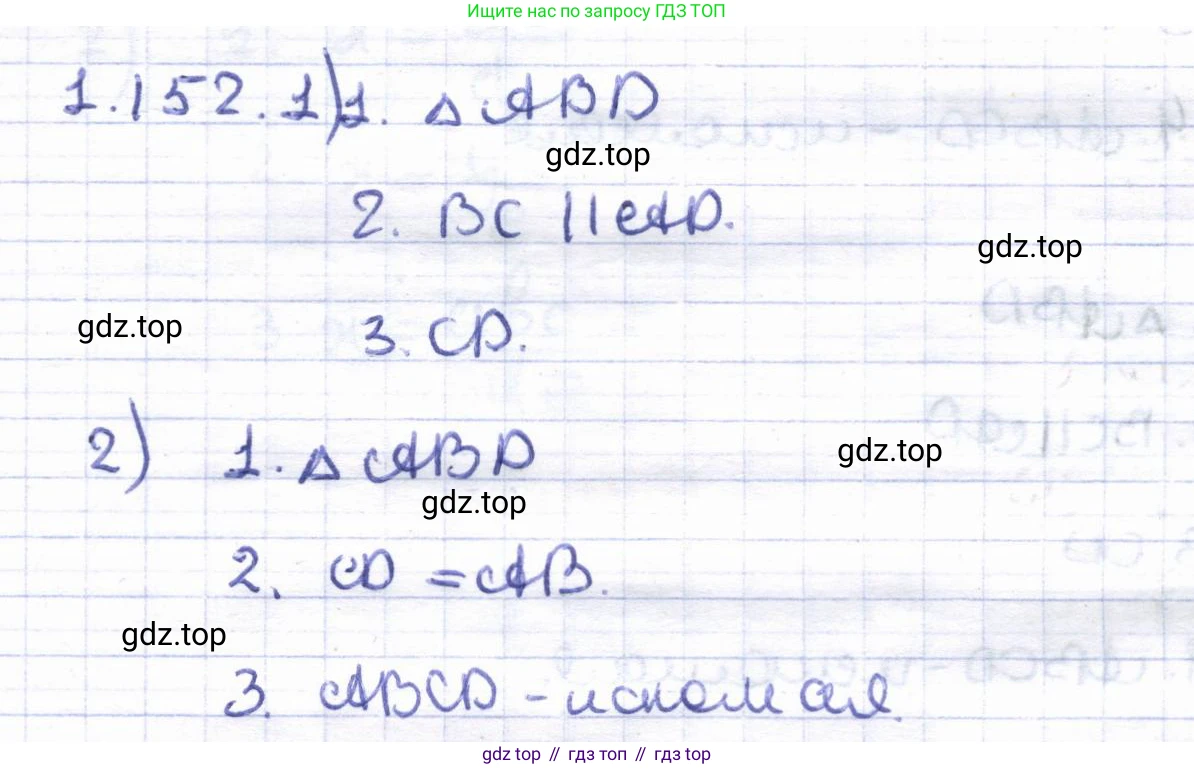 Ищите нас по запросу ГДЗ ТОП
1.152. 1) 1. △ ABD
gdz.top
2. BC || AD.
gdz.top
gdz.top
3. CD.
2) 1. △ ABD
gdz.top
gdz.top
2. CD = AB.
gdz.top
3. ABCD - искомая.
gdz top // гдз топ // gdz top